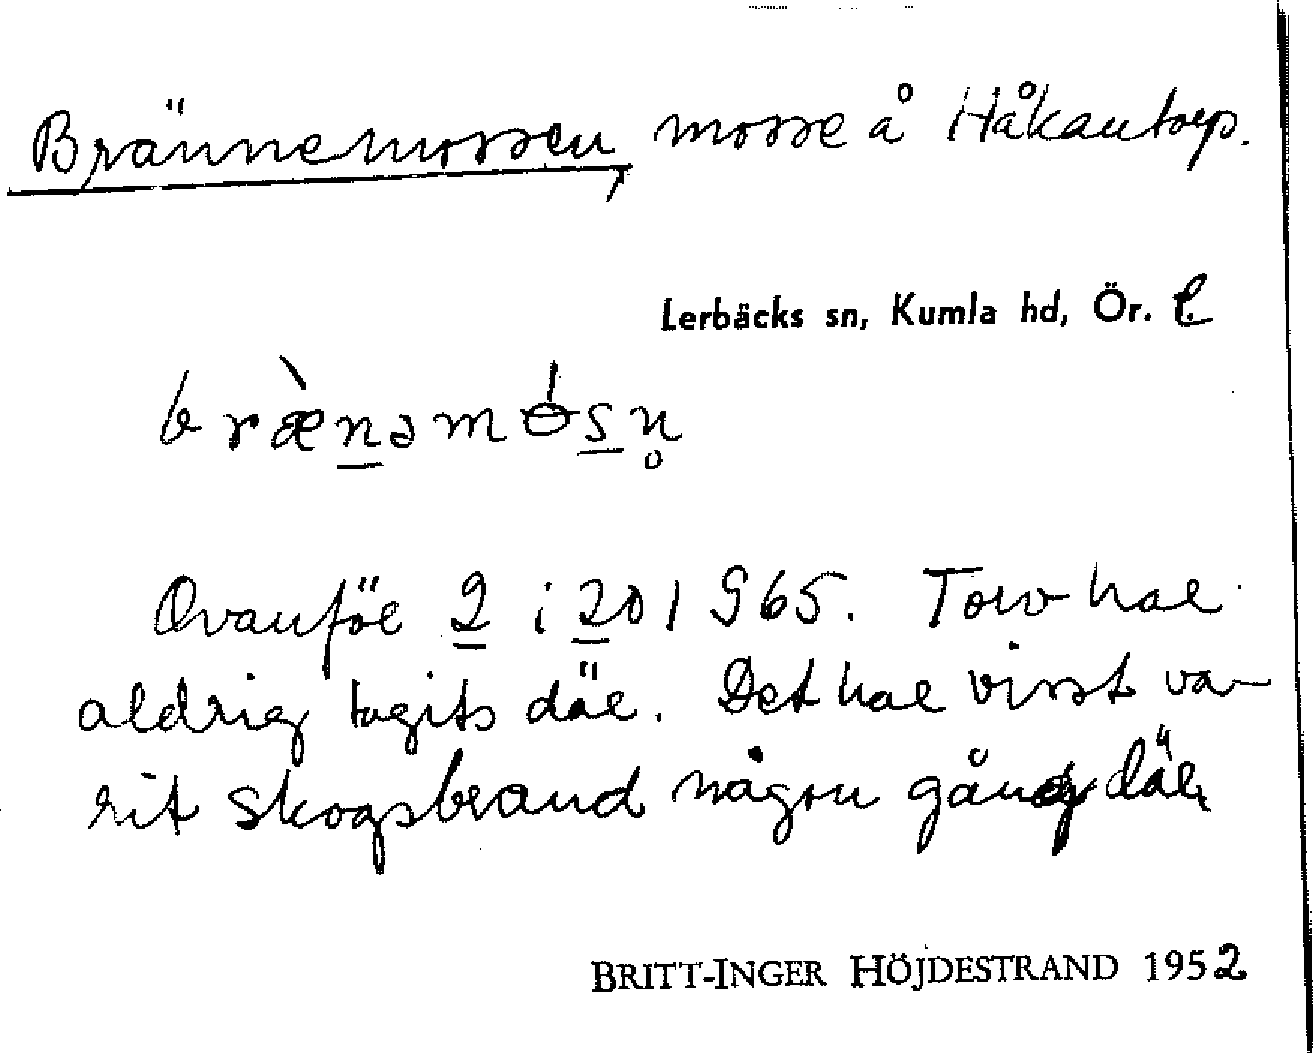 Brännemossen, mosse å Håkantorp.
Lerbäcks sn, Kumla hd, Ör. l.
bræ̀n̲əmɵ́s̲n̥
Ovanför 2 i 201 965. Torv har
aldrig tagits där. Det har visst va-
rit skogsbrand någon gång där
BRITT-INGER HÖJDESTRAND 1952